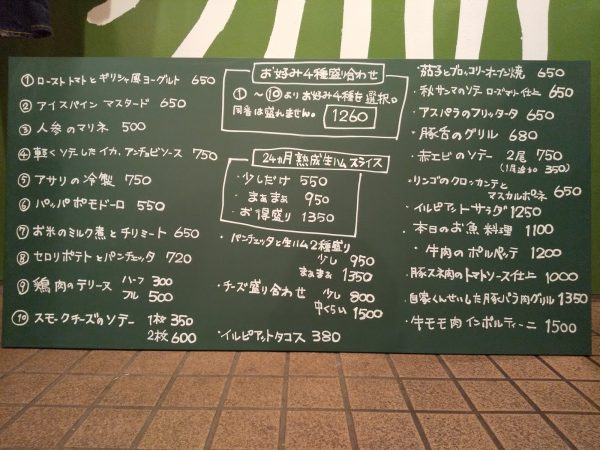 ① ローストトマトとギリシャ風ヨーグルト 650
② アイスバイン マスタード 650
③ 人参のマリネ 500
④ 軽くソテーしたイカ、アンチョビソース 750
⑤ アサリの冷製 750
⑥ パッパポモドーロ 550
⑦ お米のミルク煮とチリミート 650
⑧ セロリポテトとパンチェッタ 720
⑨ 鶏肉のテリーヌ ハーフ 300
フル 500
⑩ スモークチーズのソテー 1枚 350
2枚 600
お好み4種盛り合わせ
①～⑩よりお好み4種を選択。
同番は盛れません。 1260
24ヵ月熟成生ハムスライス
・少しだけ 550
・まぁまぁ 950
・お得盛り 1350
・パンチェッタと生ハム2種盛り
少し 950
まぁまぁ 1350
・チーズ盛り合わせ 少し 800
中くらい 1500
・イルピアットタコス 380
・茄子とブロッコリーオーブン焼 650
・秋サンマのソテー ローズマリー仕上 650
・アスパラのフリッタータ 650
・豚舌のグリル 680
・赤エビのソテー 2尾 750
(1尾追加 350)
・リンゴのクロッカンテと
マスカルポーネ 650
・イルピアットサラダ 1250
・本日のお魚料理 1100
・牛肉のポルペッテ 1200
・豚スネ肉のトマトソース仕上 1000
・自家くんせいした豚バラ肉グリル 1350
・牛モモ肉インポルティーニ 1500